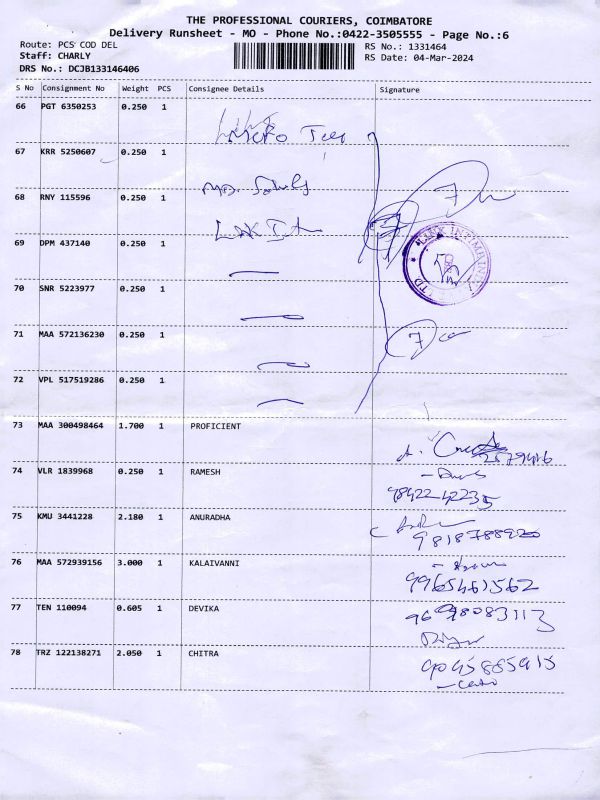 THE PROFESSIONAL COURIERS, COIMBATORE
Delivery Runsheet - MO - Phone No.:0422-3505555 - Page No.:6
Route: PCS COD DEL
RS No.: 1331464
Staff: CHARLY
RS Date: 04-Mar-2024
DRS No.: DCJB133146406
S No Consignment No Weight PCS Consignee Details Signature
66 PGT 6350253 0.250 1
67 KRR 5250607 0.250 1
68 RNY 115596 0.250 1
69 DPM 437140 0.250 1
70 SNR 5223977 0.250 1
71 MAA 572136230 0.250 1
72 VPL 517519286 0.250 1
73 MAA 300498464 1.700 1 PROFICIENT
74 VLR 1839968 0.250 1 RAMESH
9842242235
75 KMU 3441228 2.180 1 ANURADHA
9818788920
76 MAA 572939156 3.000 1 KALAIVANNI
9965461562
77 TEN 110094 0.605 1 DEVIKA
78 TRZ 122138271 2.050 1 CHITRA
9045885915